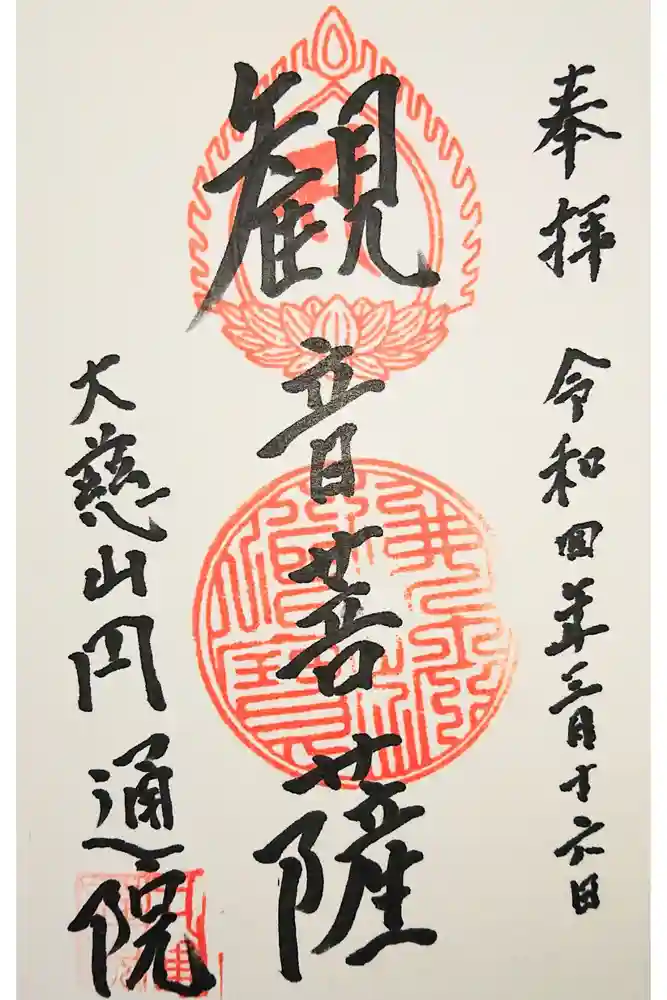 奉拝 令和四年三月十六日
観音菩薩
大慈山円通院